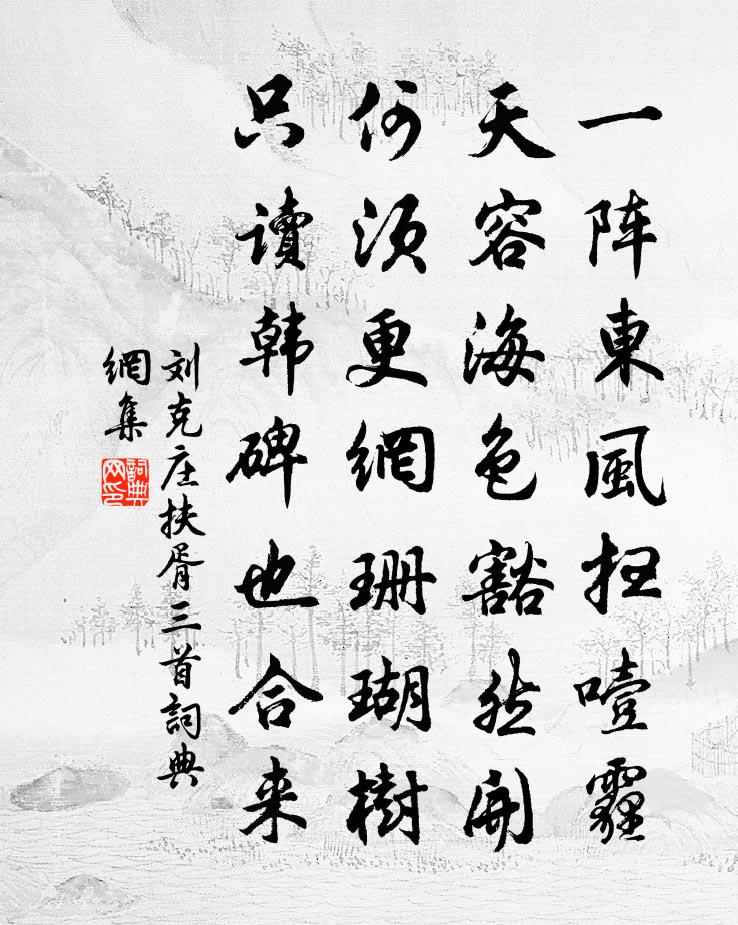 一阵東風扫噎霾
天容海色豁然開
何须更網珊瑚樹
只读韩碑也合来
刘克庄扶胥三首詞典
網集
詞典網印